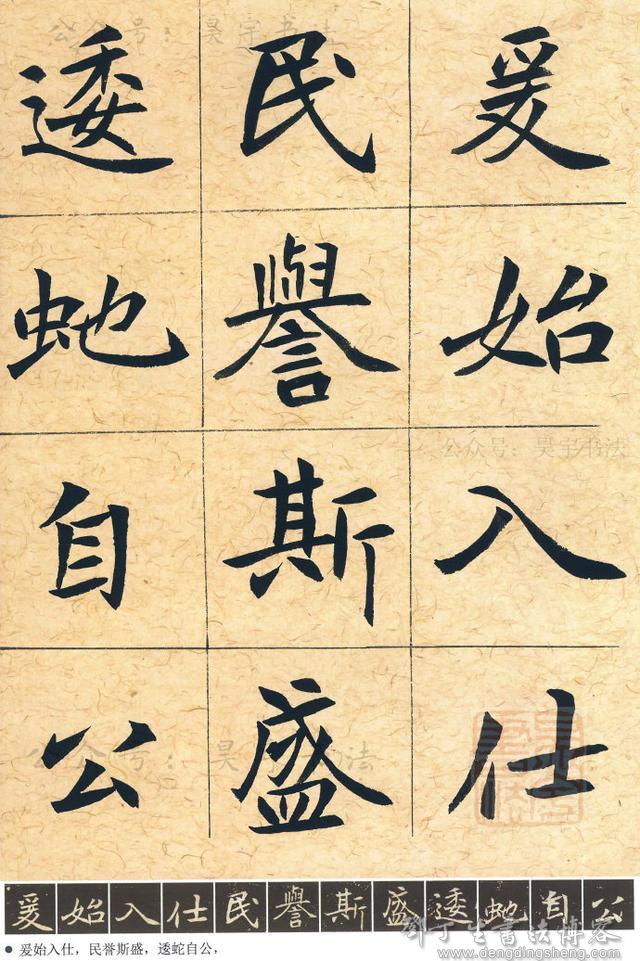 爰始入仕
民譽斯盛
逶虵自公
公众号：昊宇书法
公众号：昊宇书法
公众号：昊宇书法
爰始入仕民譽斯盛逶虵自公
● 爰始入仕，民誉斯盛，逶蛇自公，
邓丁生書法博客
www.dengdingsheng.com